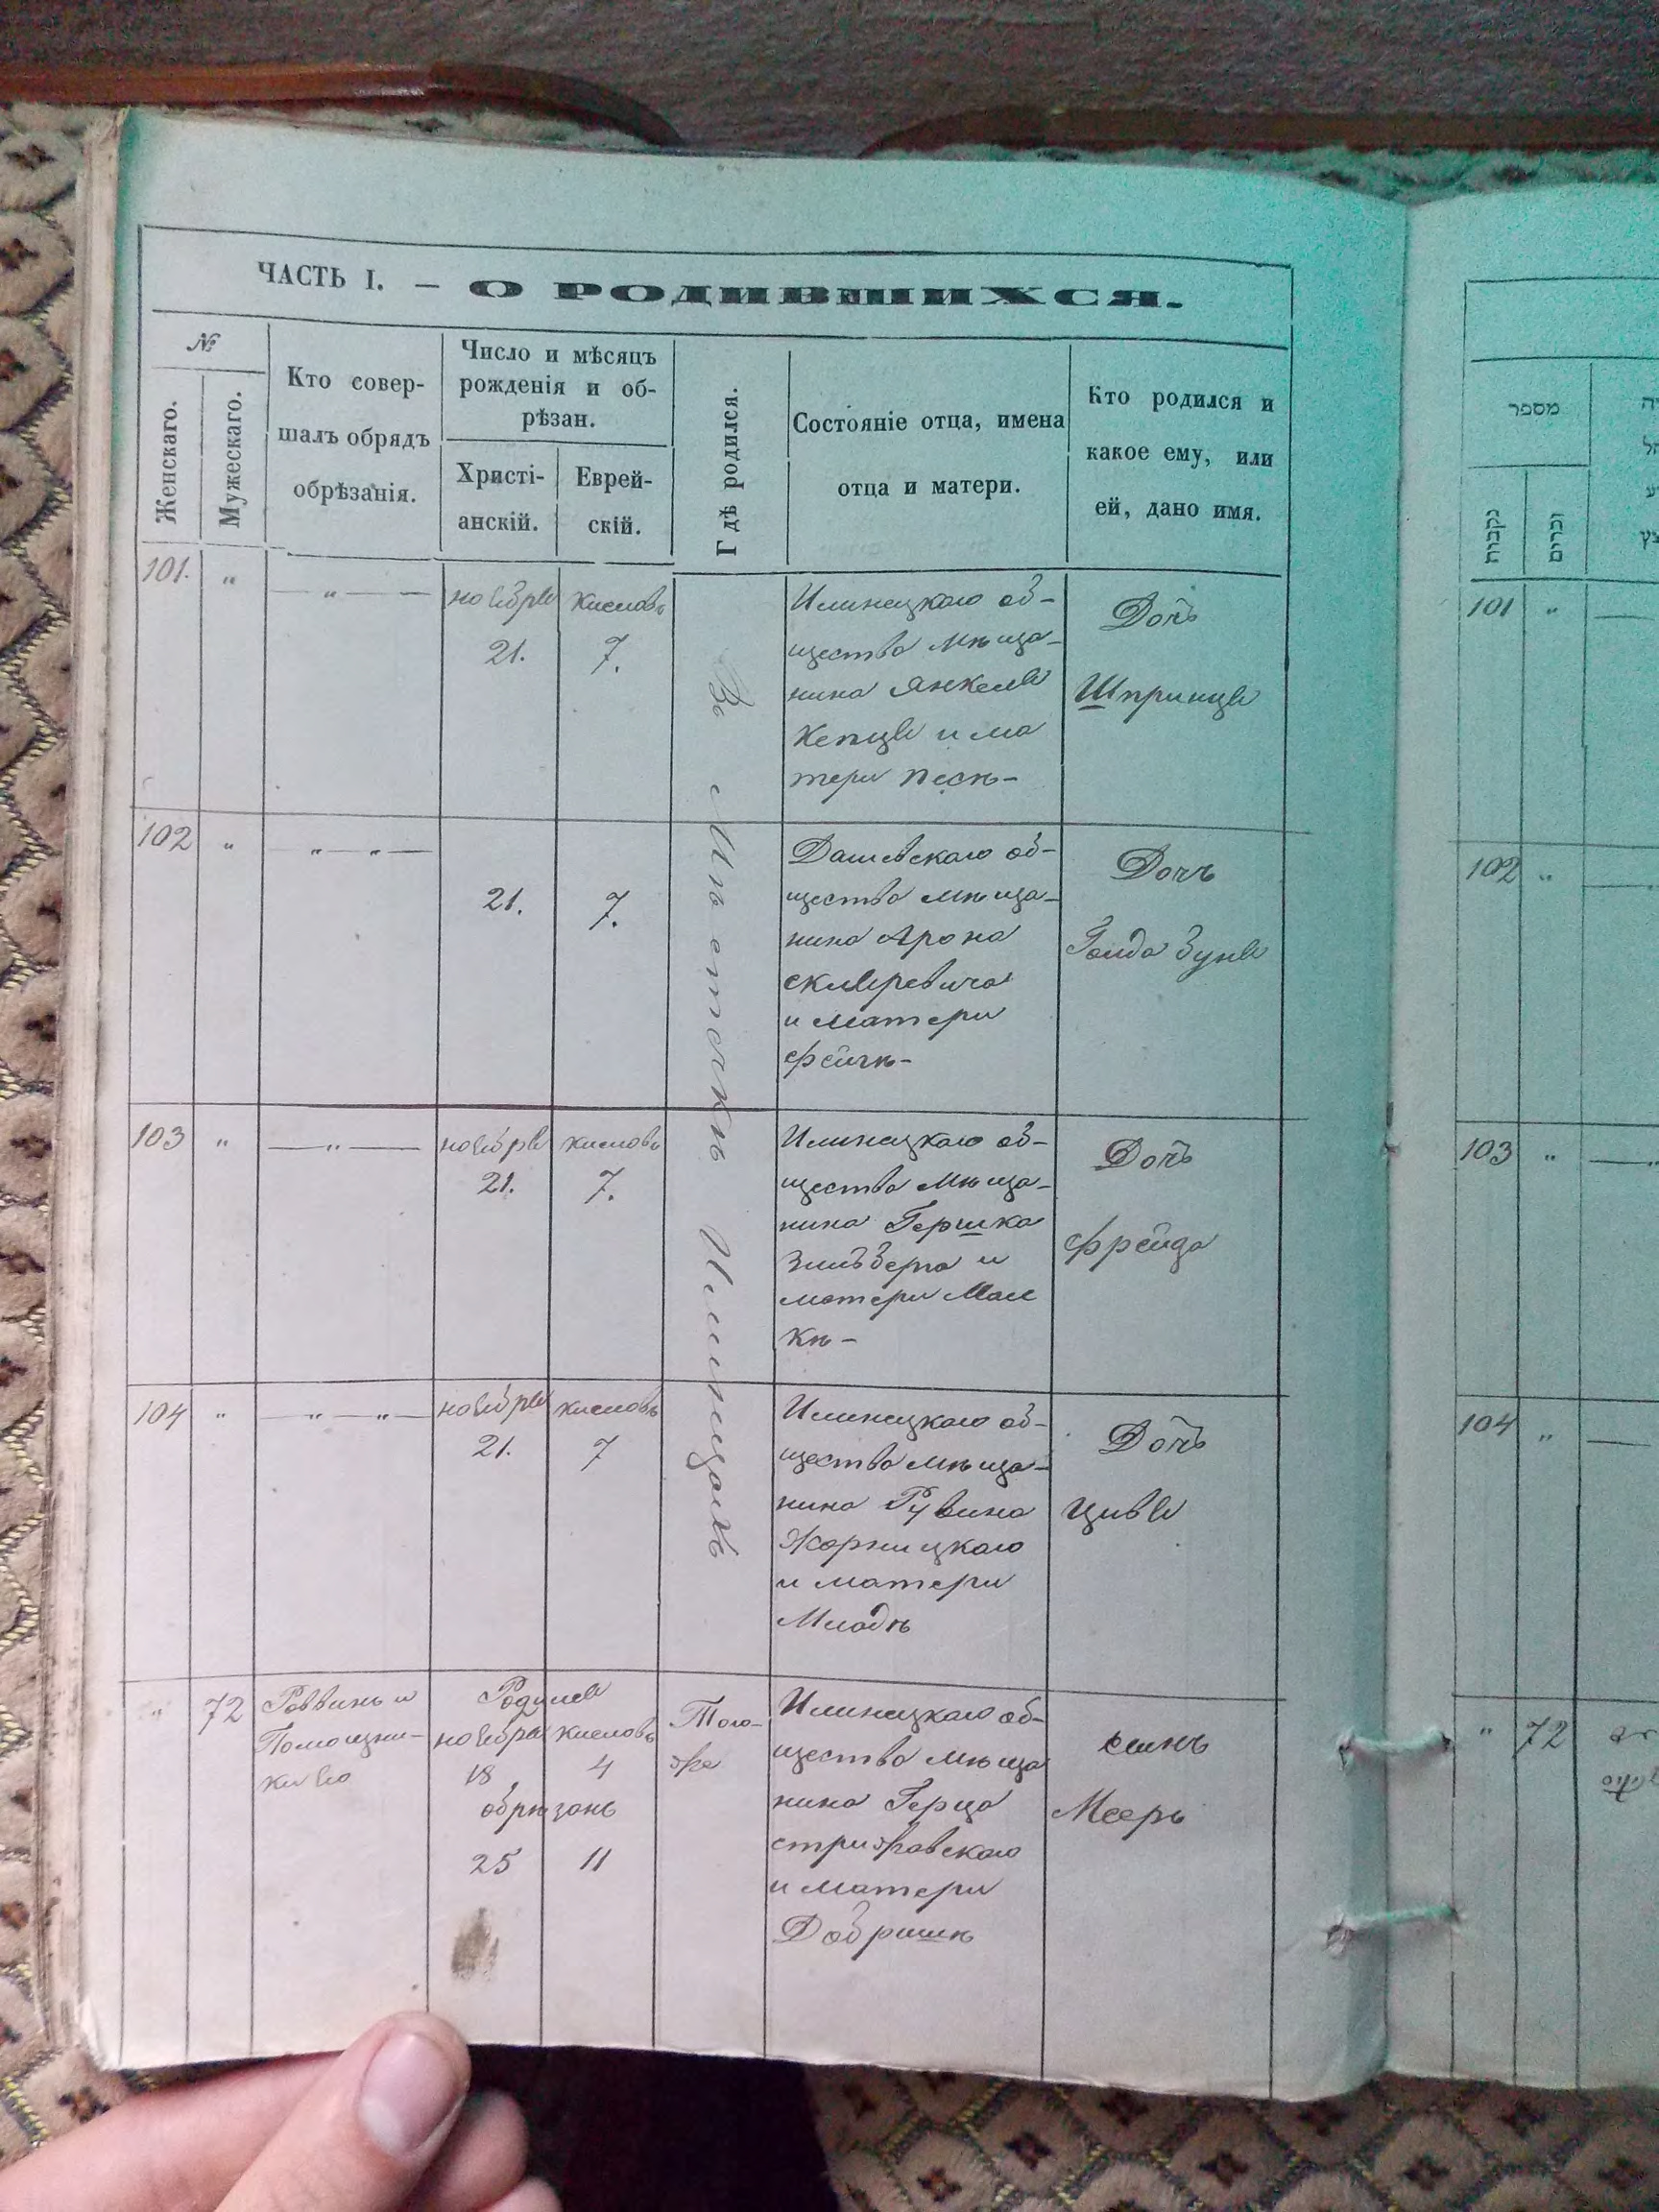 ЧАСТЬ I. — О РОДИВШИХСЯ.
№
Женскаго.
Мужескаго.
Кто совер-
шалъ обрядъ
обрѣзанія.
Число и мѣсяцъ
рожденія и об-
рѣзан.
Христі-
анскій.
Еврей-
скій.
Гдѣ родился.
Состояніе отца, имена
отца и матери.
Кто родился и
какое ему, или
ей, дано имя.
101. " — " — —
ноября
21.
кислова
7.
Въ Мѣстечкѣ Илинцахъ
Илинецкаго об-
щества мѣща-
нина Янкеля
и ма
тери Песѣ-
Дочь
Шпринця
102 " " — " —
21.
7.
Дашевскаго об-
щества мѣща-
нина Арона
Скляревича
и матери
Фейгѣ-
Дочь
Голда
103 " — " —
ноября
21.
кислова
7.
Илинецкаго об-
щества мѣща-
нина Гершка
Зильберга и
матери Мал
кѣ-
Дочь
Фрейда
104 " — " — " —
ноября
21.
кислова
7
Илинецкаго об-
щества мѣща-
нина Рувина
Жорницкаго
и матери
Дочь
Цивя
" 72
Раввинъ и
Помощни-
Родился
ноября
18
кислова
4
обрѣзанъ
25
11
Того-
же
Илинецкаго об-
щества мѣща
нина Герца
Стрижавскаго
и матери
Добришѣ
сынъ
Мееръ
מספר
נקבות
זכרים
101 "
102 "
103 "
104 "
" 72